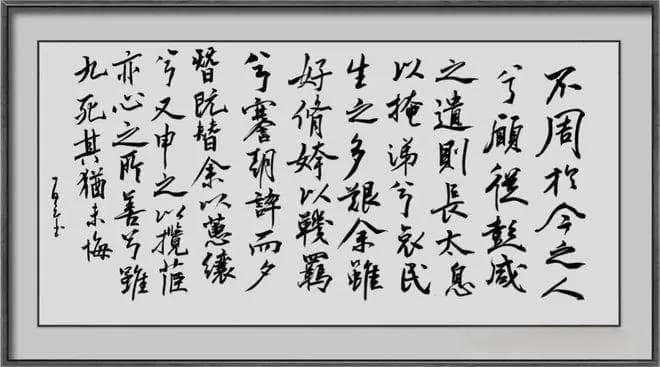 不周於今之人
兮願從彭咸
之遺則長太息
以掩涕兮哀民
生之多艱余雖
好脩姱以鞿羈
兮謇朝誶而夕
替既替余以蕙纕
兮又申之以攬茝
亦心之所善兮雖
九死其猶未悔